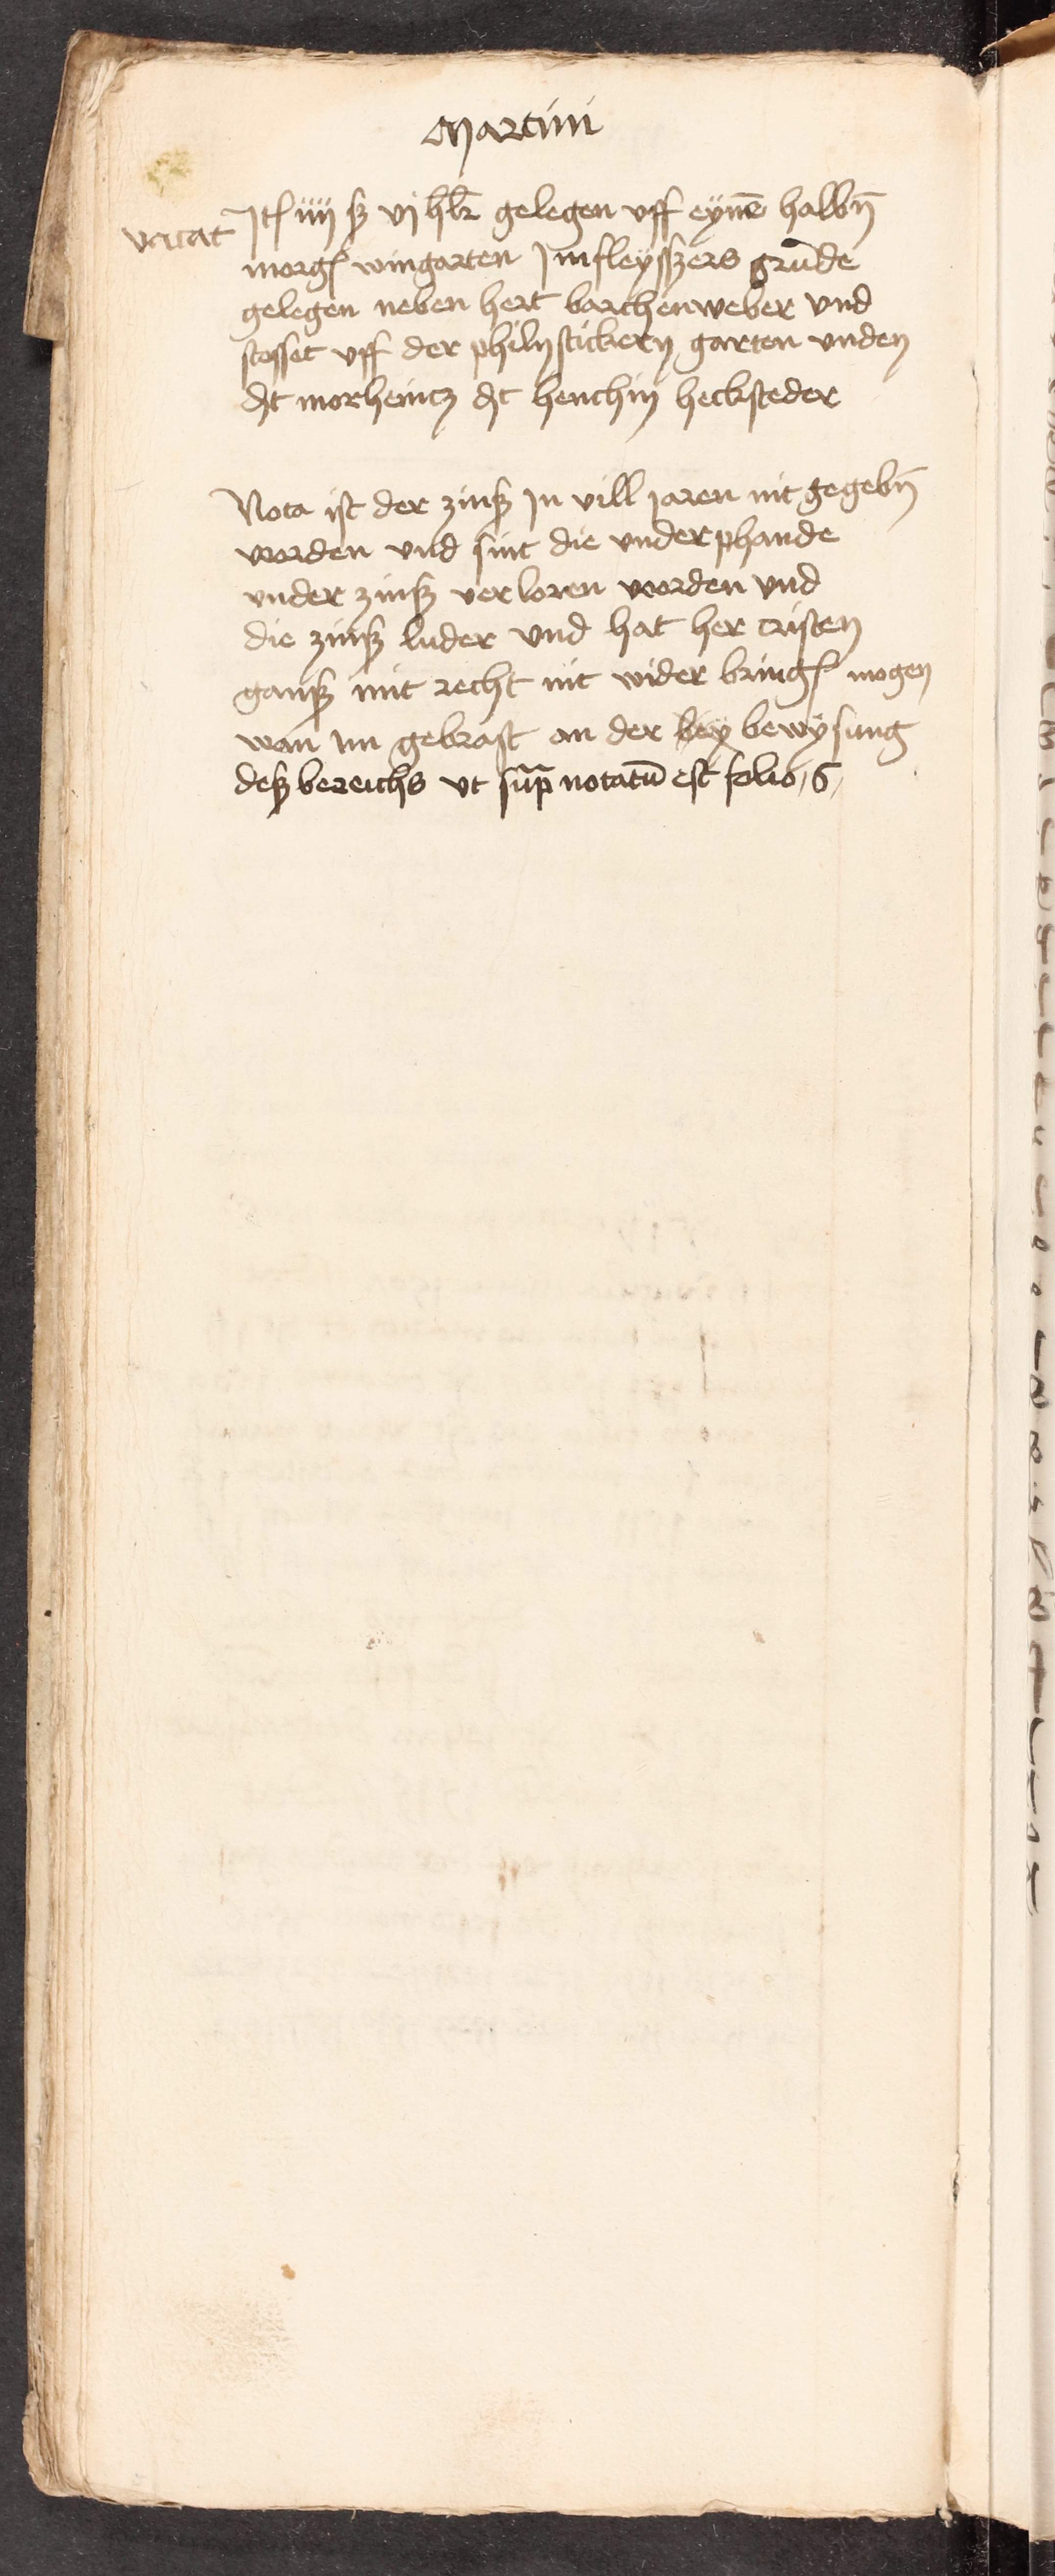 Martini
vacat
Itē iiij ß vj hlr̄ gelegen vff eynē halbn̄
morgē wingarten Im fleyszers grūde
gelegen neben hert barchenweber vnd
stosset vff der philn stickern garten vnden
dt morheintz dt henchin hecksteder
Nota ist der zinß In vill jaren nit gegebn̄
worden vnd sint die vnderphande
vnder zinß verloren worden vnd
die zinß luder vnd hat her cristen
ganß mit recht nit wider bringē mogen
wan im gebrast an der bey bewysung
deß bereichs vt sup̄ notatū est folio 6